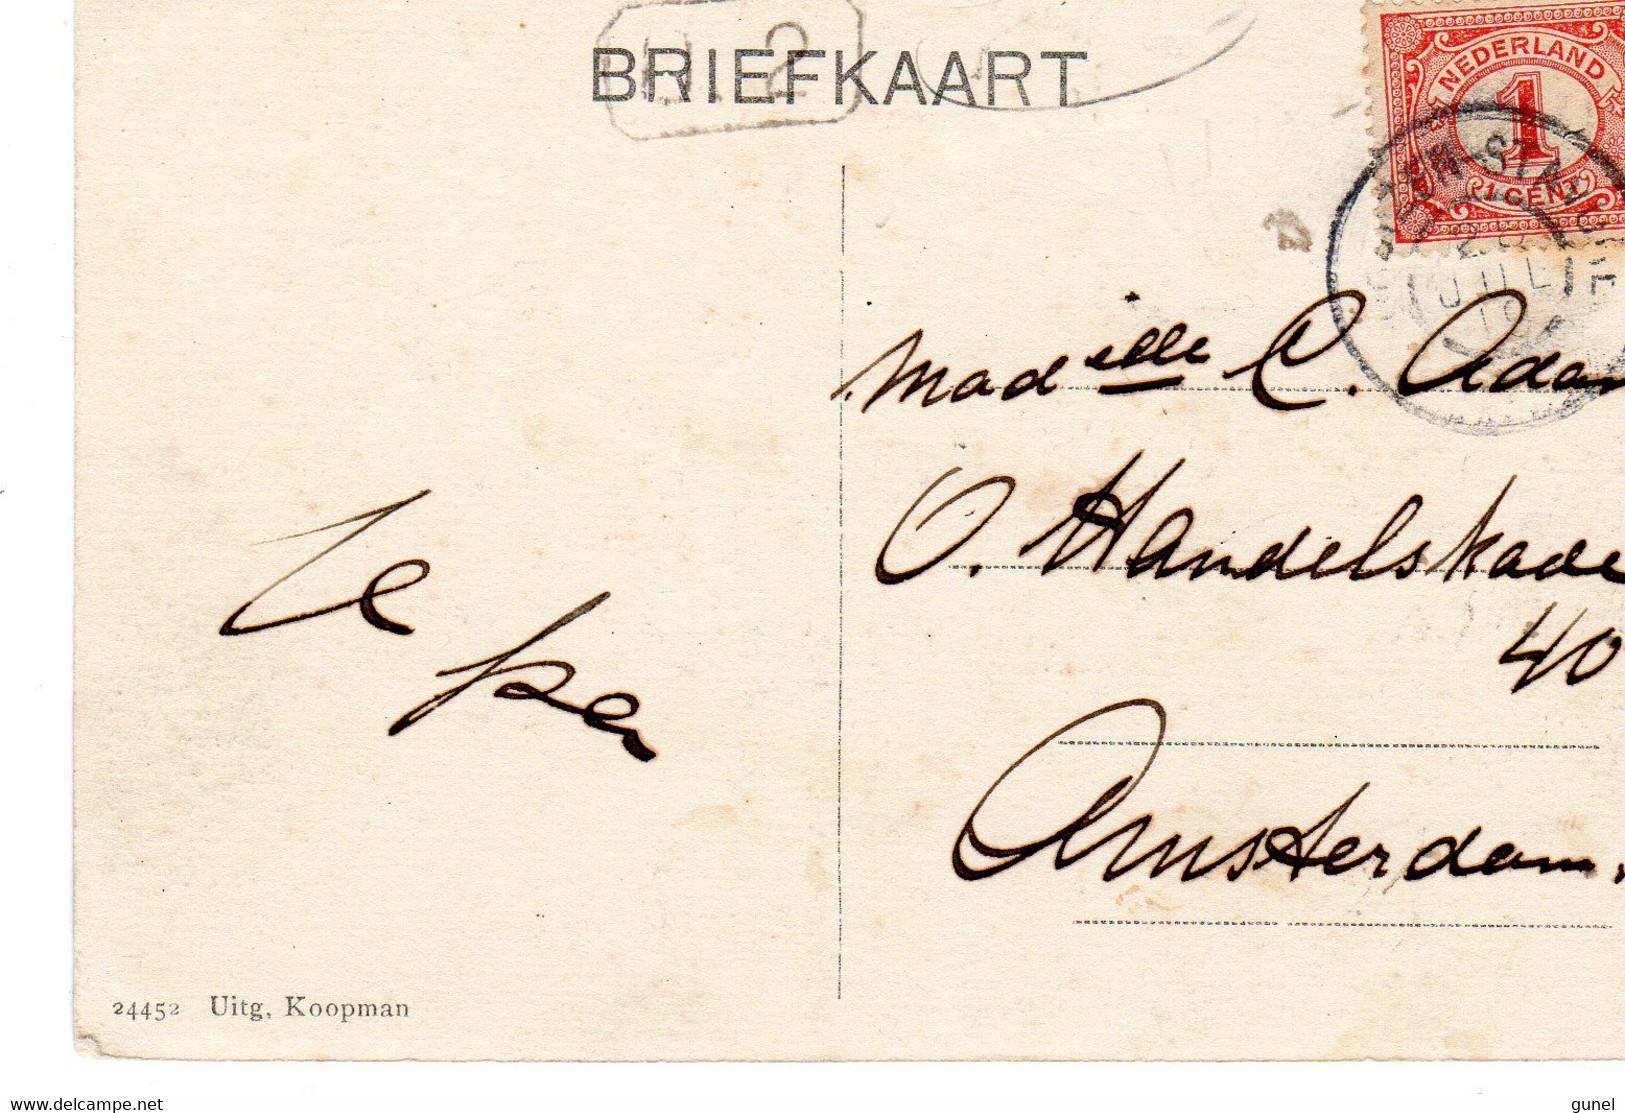 H. 2
BRIEFKAART
NEDERLAND
1
1 CENT
28
JULI
Mad<sup>elle</sup> C. Adam
O. Handelskade
40
Amsterdam.
24452 Uitg. Koopman
delcampe.net
gunel